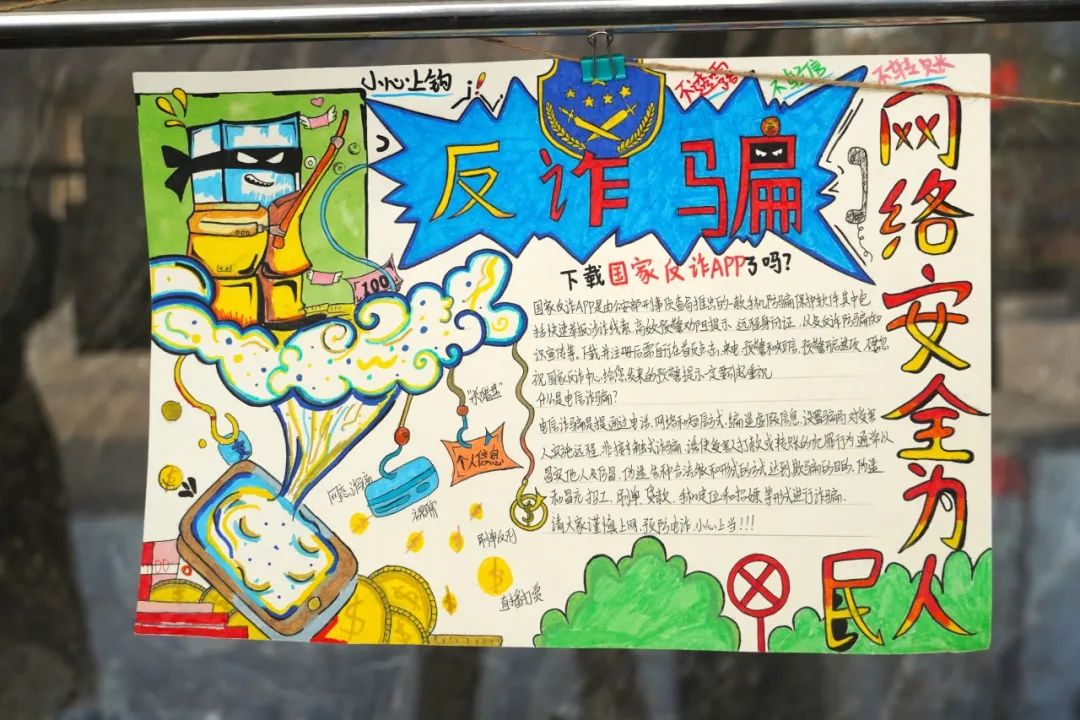 小心上钩
不透露
不轻信
不转账
反诈骗
网络安全为人民
下载国家反诈APP了吗?
国家反诈APP是由公安部刑事侦查局推出的一款手机防骗保护软件,其中包
括快速举报涉诈线索,高效预警劝阻提示、远程身份证,以及反诈防骗知
识宣传等。下载并注册后需自行在首页点击,来电预警和短信预警
国家反诈中心给您发来的预警提示一定要引起重视
什么是电信诈骗?
电信诈骗是指通过电话、网络和短信方式,编造虚假信息,设置骗局,对受害
人实施远程、非接触式诈骗,诱使受害人打款或转账的犯罪行为,通常以
冒充他人及仿冒、伪造各种合法外衣和形式的方式达到欺骗的目的,伪造
和冒充招工、刷单、贷款、手机定位和招嫖等形式进行诈骗.
请大家谨慎上网,预防电诈,小心上当!!!
100
"杀猪盘"
个人信息
网恋诱骗
刷单返利
直播打赏
100